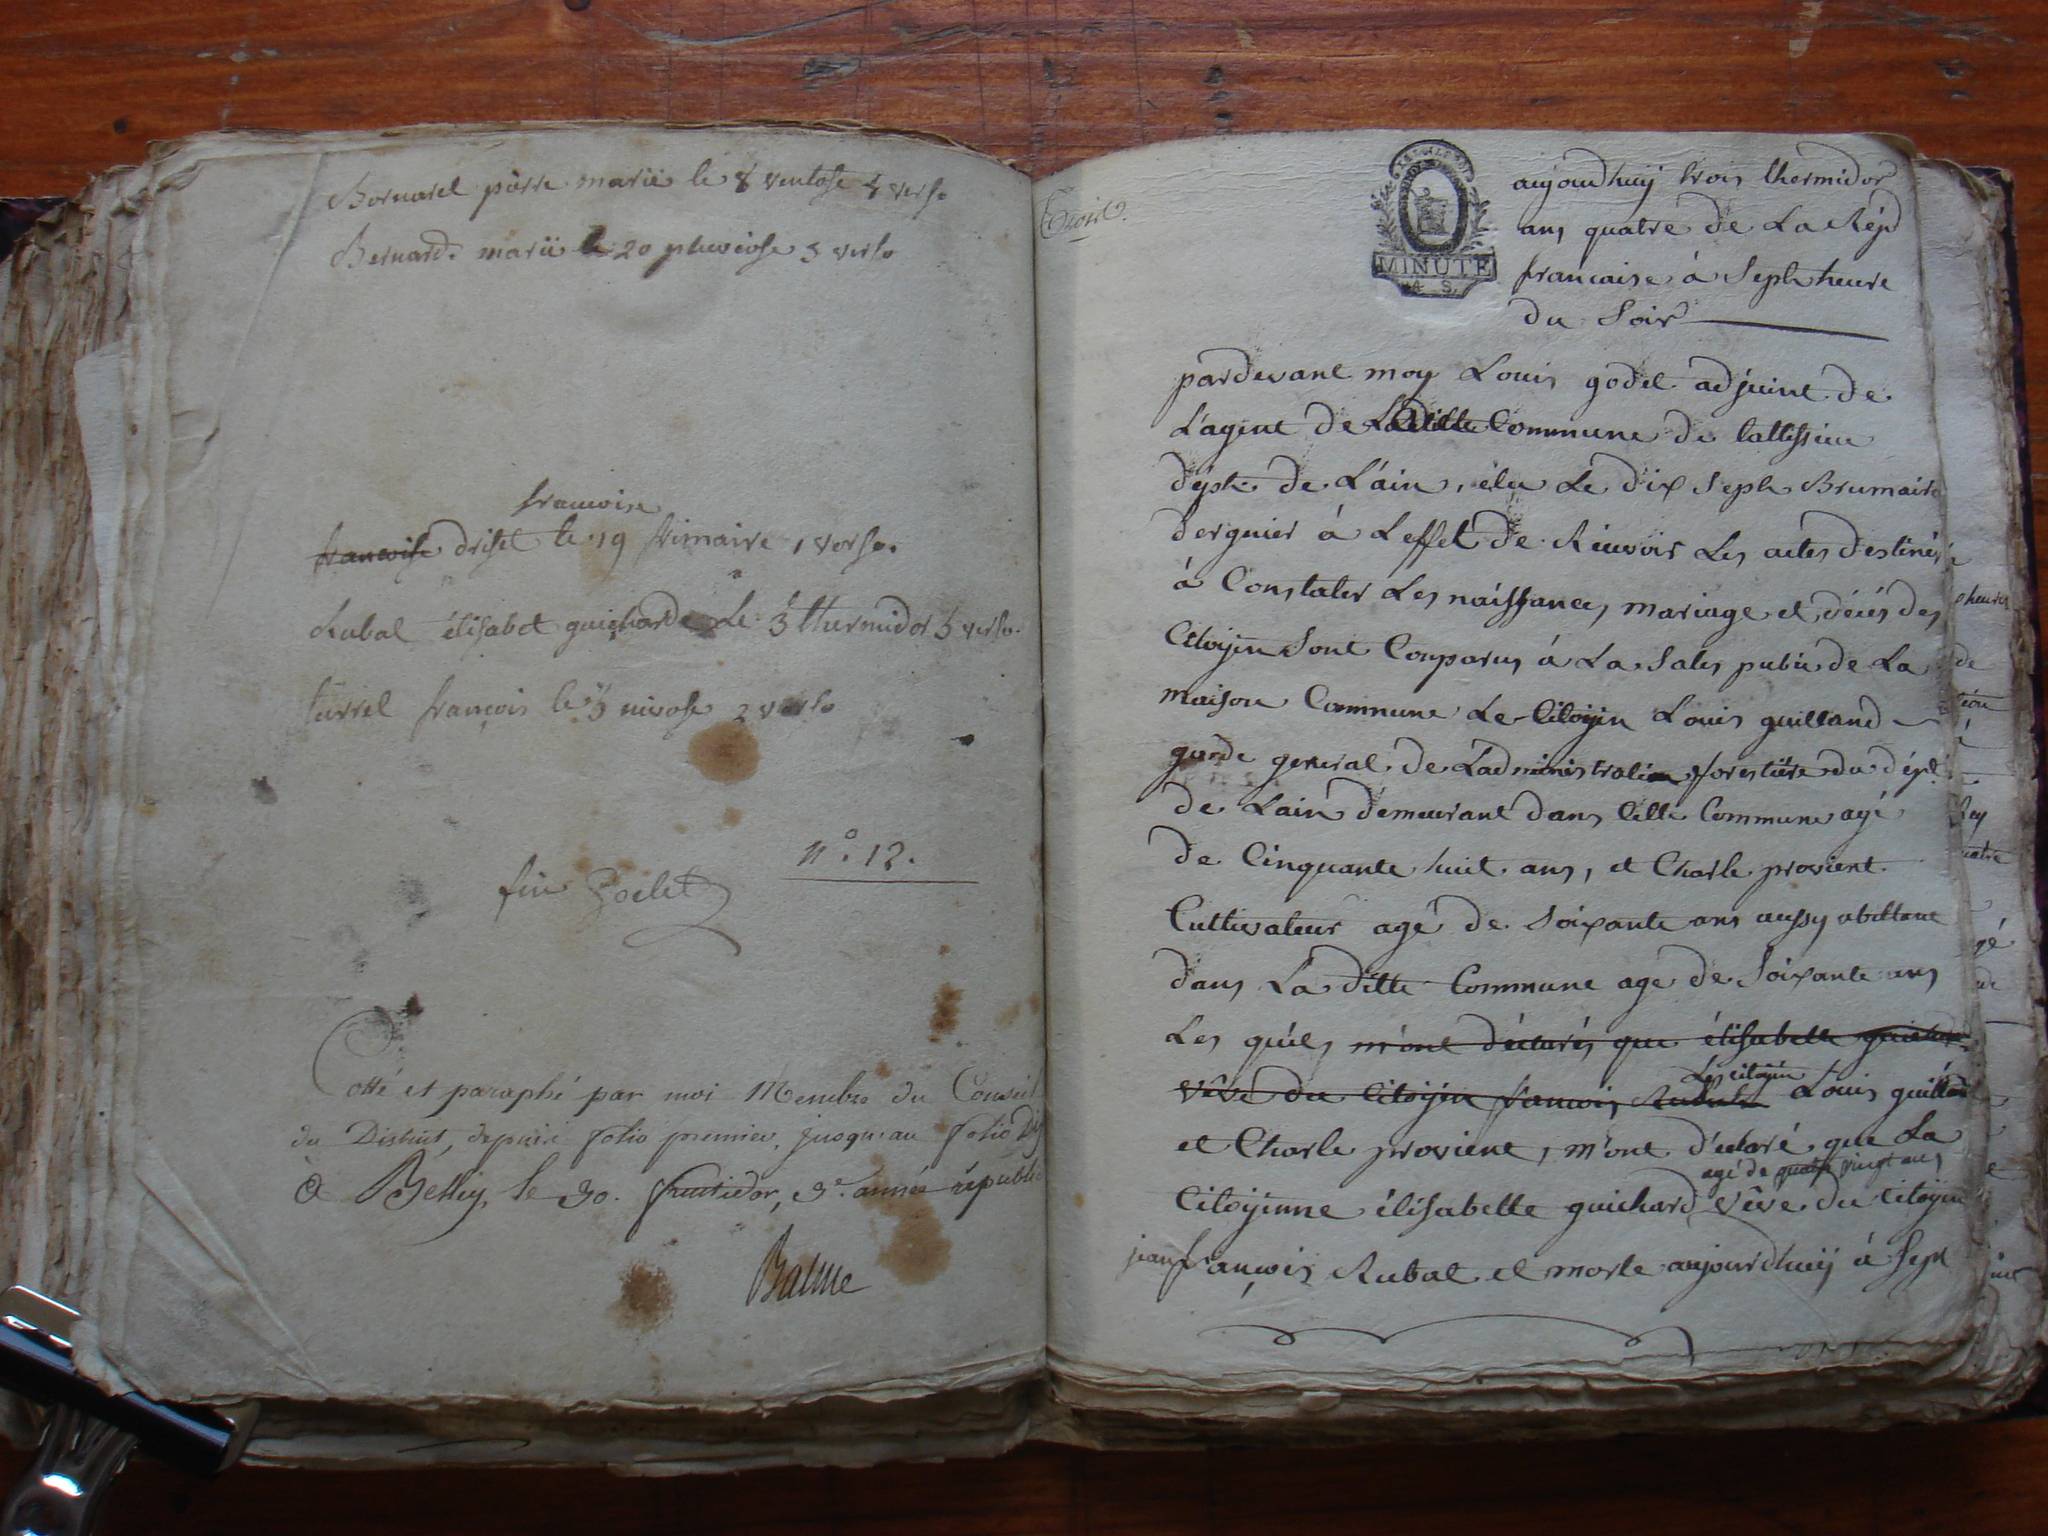 Bornarel pierre marie le 8 ventose 4 verso
Bernard marie le 20 pluviose 3 verso
francoise
francoise driset le 19 frimaire 1 verso.
Rubat élisabet guichard Le 3 thermidor 5 verso.
turrel françois le 3 nivose 2 verso
n°. 12.
fin Godet
Cotté et paraphé par moi Membre du Conseil
du District, depuis folio premier jusqu'au folio Dix
à Belley, le 30. fructidor, 3e. année républic
Balme
MINUTE
4 S.
aujourdhuÿ trois thermidor
ans quatre de La Rép
francaise à Sept heure
du Soir
pardevant moy Louis godet adjoint de
L'agent de Laditte Commune de
dépt. de L'ain, élu Le dix Sept Brumaire
dergnier à Leffet de Recevoir Les actes destinés
à Constater Les naissances, mariage et décés des
Citoÿen Sont Comparus à La Sales public de La
maison Commune Le Citoÿen Louis guilland
garde general de L'administration forestière du dépt.
de Lain demeurant dans Cette Commune agé
de Cinquante huit ans, et Charle provient
Cultivateur agé de Soixante ans aussy abittant
dans La ditte Commune age de Soixante ans
Les quels m'ont déclarés que élisabette guichard
Les citoÿen
vêve du Citoÿen francois Rubat Louis guilland
et Charle provient, m'ont déclaré que La
agé de quatre vingt ans
Citoÿenne élisabette guichard vêve du Citoÿen
jean françois Rubat et morte aujourdhuÿ à Sept